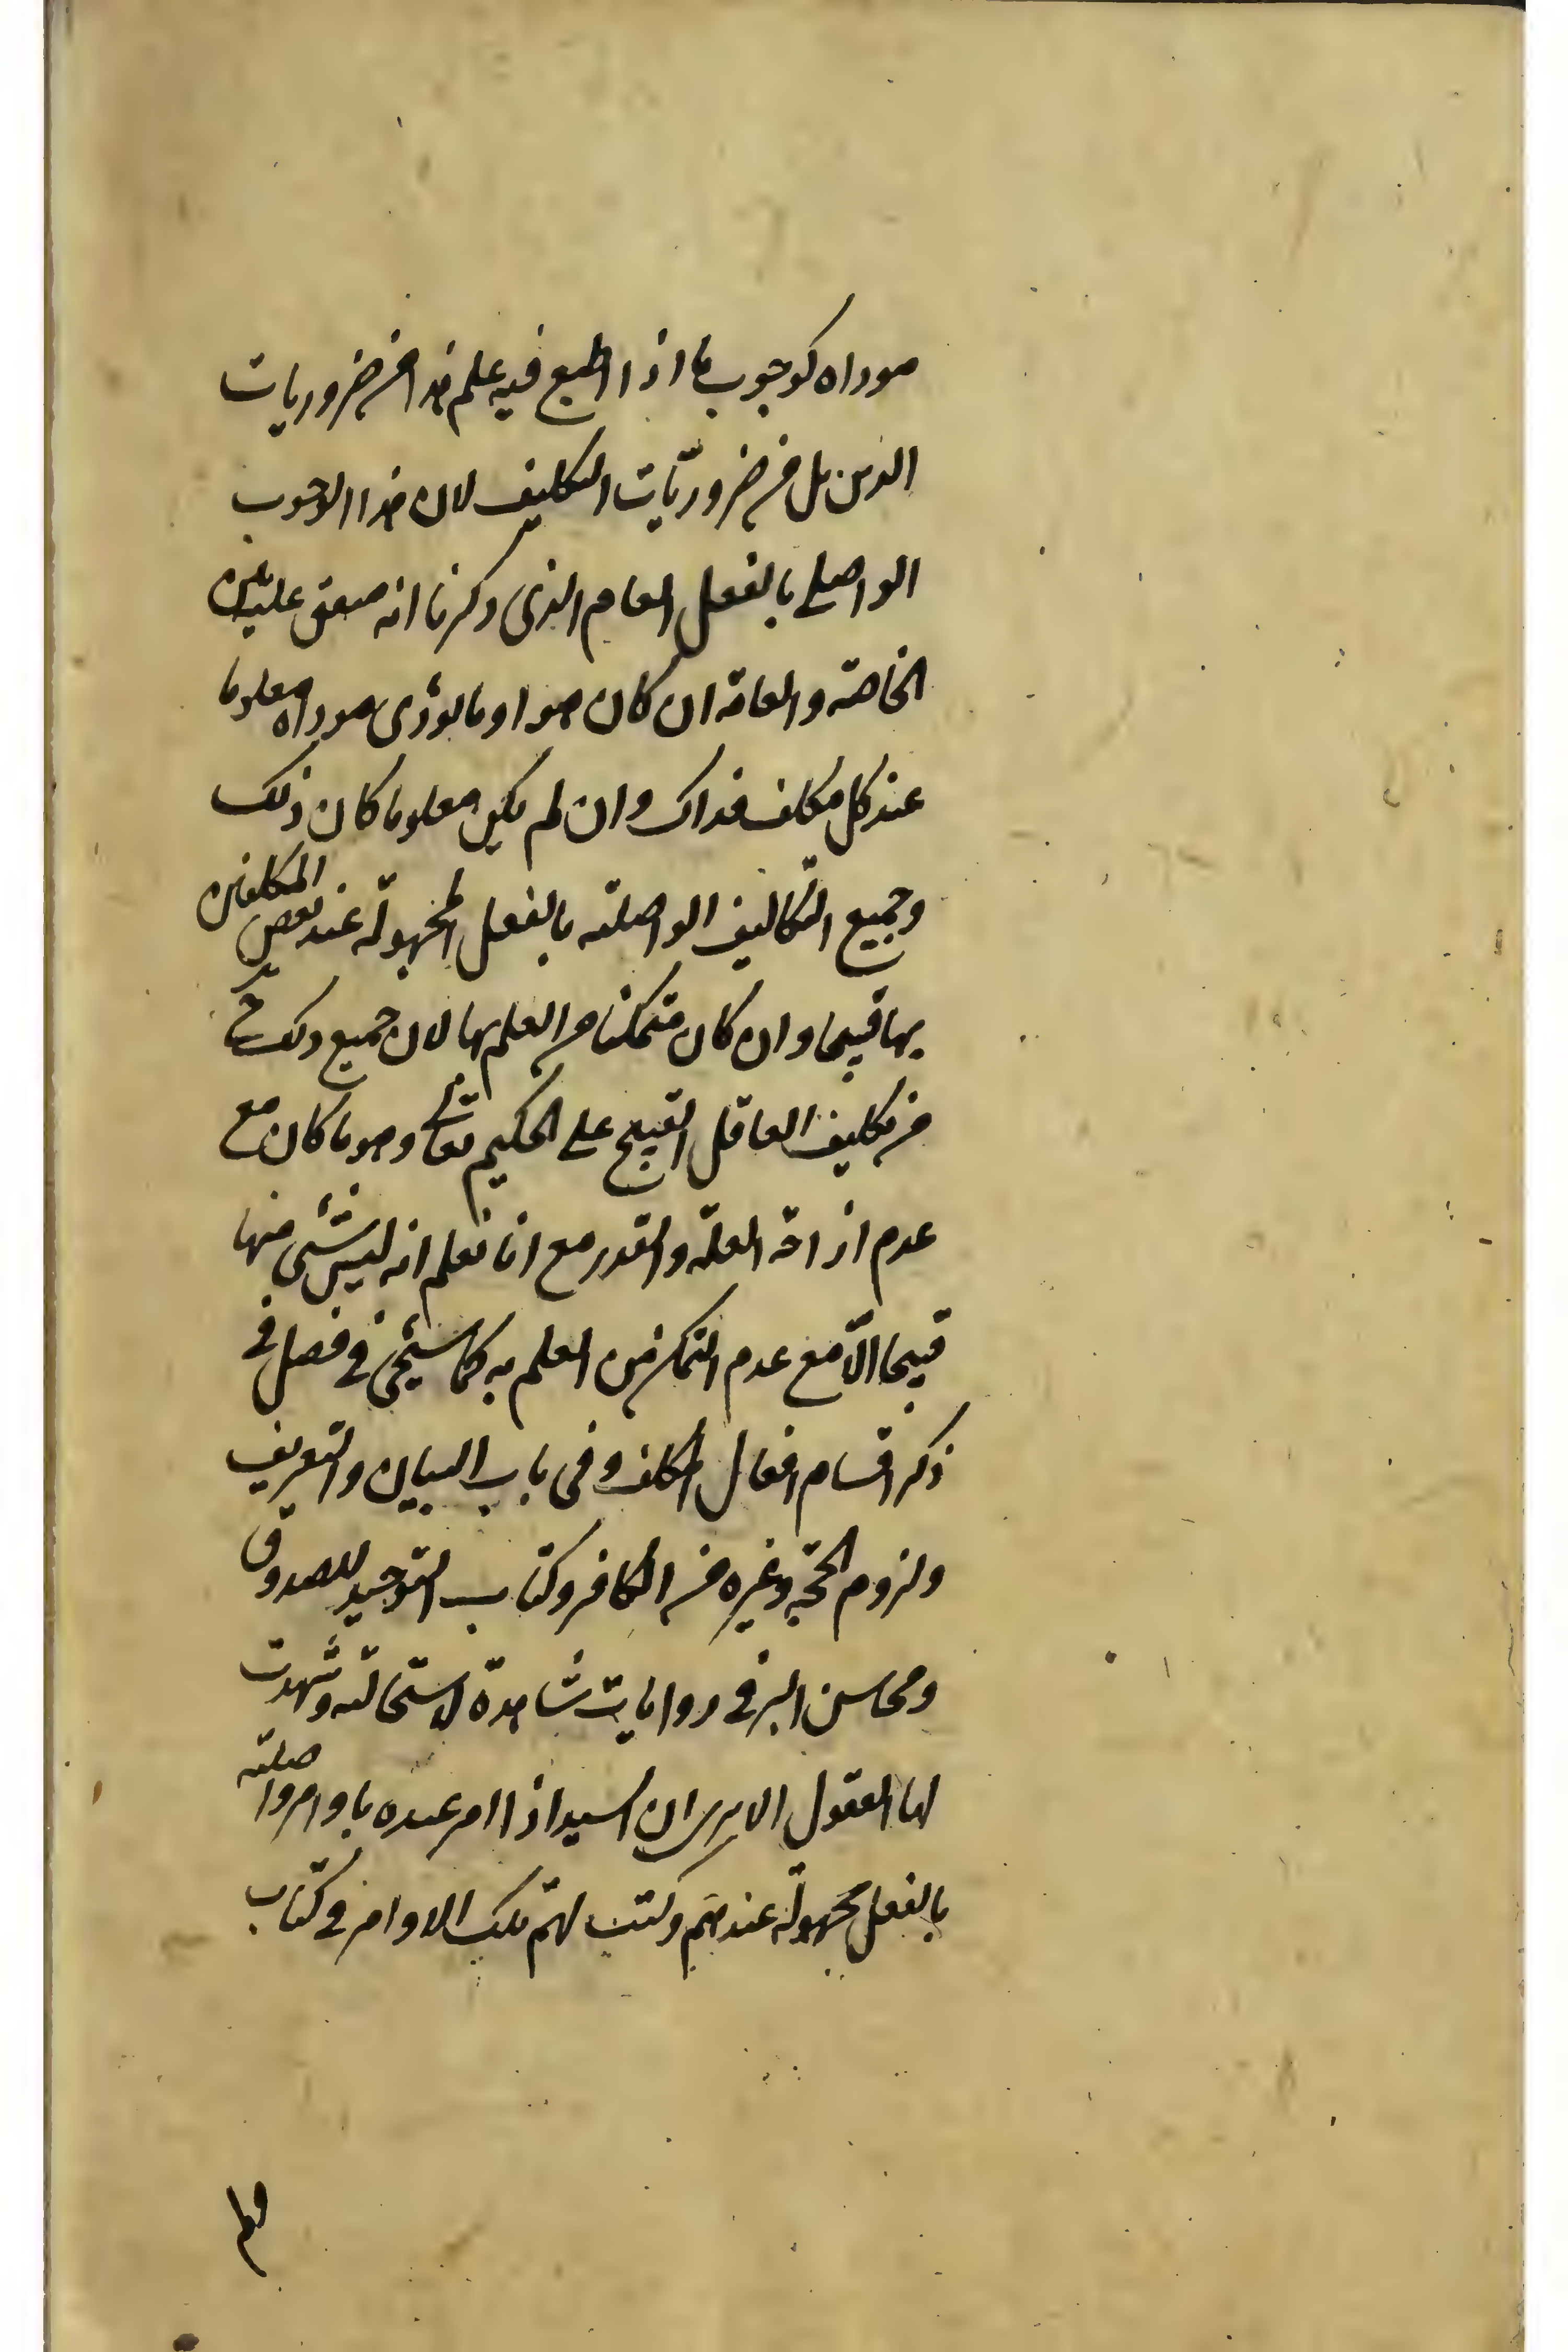 موداه كوجوب ما اذا اطبع فيه علم هذا من ضروريات
الدين بل من ضروريّات التكليف لان هذا الوجوب
الواصلى بالفعل العام الذى ذكرنا انه متفق عليه بين
الخاصة والعامة ان كان هو او ما يؤدى موداه معلوما
عند كل مكلف فذاك وان لم يكن معلوما كان ذلك
وجميع التكاليف الواصلة بالفعل المجهولة عند بعض المكلفين
بها قبيحا وان كان متمكنا من العلم بها لان جميع ذلك ح
من تكليف الغافل القبيح على الحكيم تعالى وهو ما كان مع
عدم ازاحة العلة والقدر مع انا نعلم انه ليس شئ منها
قبيحا الّا مع عدم التمكن من العلم به كما سيجئ فى فصل فى
ذكر اقسام افعال المكلف وفى باب البيان والتعريف
ولزوم الحجّة وغيره من الكافى وكتاب التوحيد للصدوق
ومحاسن البرقى روايات شاهدة لاستحالته وشهدت
لها العقول الا يرى ان السيد اذا امر عبده باوامر واصلة
بالفعل مجهولة عندهم وكتب لهم تلك الاوامر فى كتاب